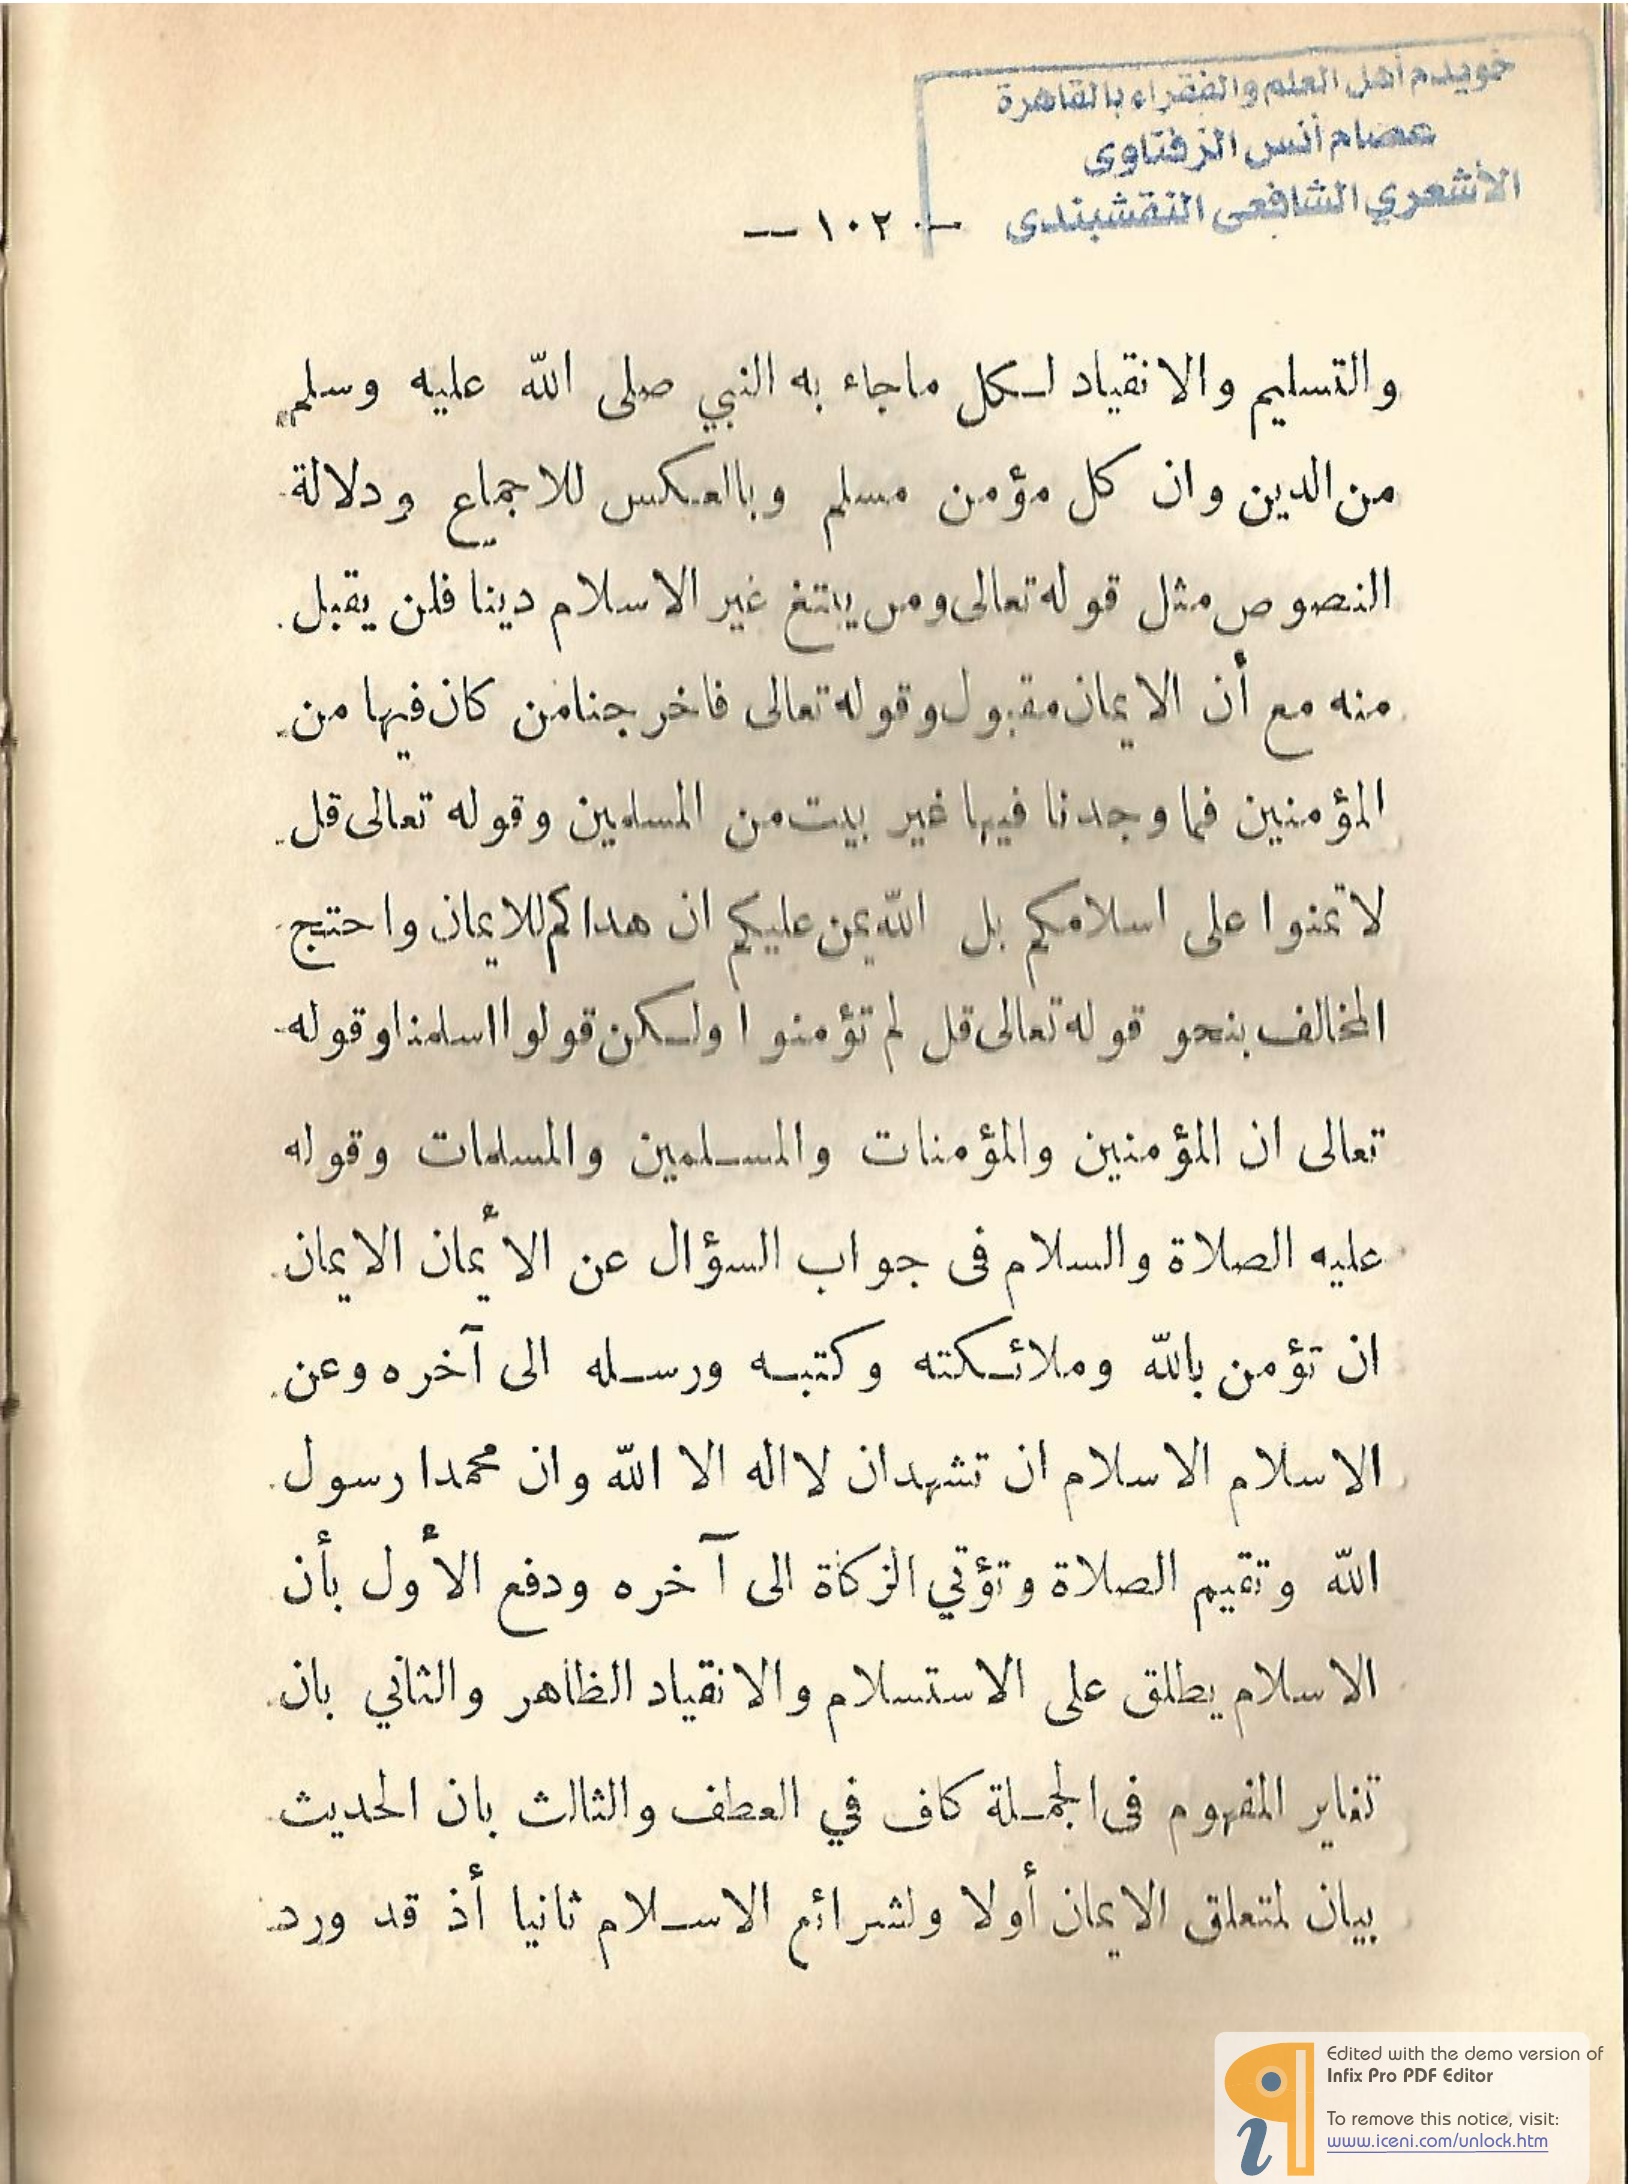 خويدم أهل العلم والفقراء بالقاهرة
عصام أنس الزفتاوى
الأشعري الشافعى النقشبندى
— ١٠٢ —
والتسليم والانقياد لـكل ماجاء به النبي صلى الله عليه وسلم
من الدين وان كل مؤمن مسلم وبالعكس للاجماع ودلالة
النصوص مثل قوله تعالى ومن يبتغ غير الاسلام دينا فلن يقبل
منه مع أن الايمان مقبول وقوله تعالى فاخرجنا من كان فيها من
المؤمنين فما وجدنا فيها غير بيت من المسلمين وقوله تعالى قل
لا تمنوا على اسلامكم بل الله يمن عليكم ان هداكم للايمان واحتج
المخالف بنحو قوله تعالى قل لم تؤمنوا ولـكن قولوا اسلمنا وقوله
تعالى ان المؤمنين والمؤمنات والمسلمين والمسلمات وقوله
عليه الصلاة والسلام فى جواب السؤال عن الأيمان الايمان
ان تؤمن بالله وملائـكته وكتبـه ورسـله الى آخره وعن
الاسلام الاسلام ان تشهد ان لا اله الا الله وان محمدا رسول
الله وتقيم الصلاة وتؤتي الزكاة الى آخره ودفع الأول بأن
الاسلام يطلق على الاستسلام والانقياد الظاهر والثاني بان
تغاير المفهوم فى الجمـلة كاف في العطف والثالث بان الحديث
بيان لمتعلق الايمان أولا ولشرائع الاسـلام ثانيا أذ قد ورد
Edited with the demo version of
Infix Pro PDF Editor
To remove this notice, visit:
www.iceni.com/unlock.htm